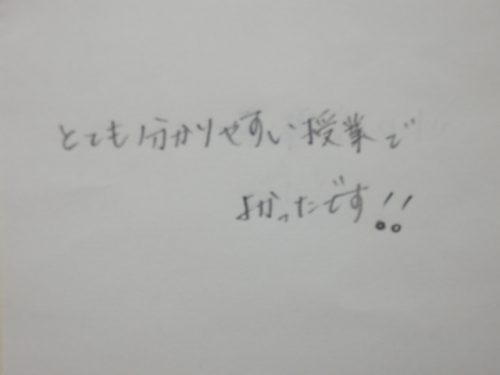 とても分かりやすい授業で
よかったです!!